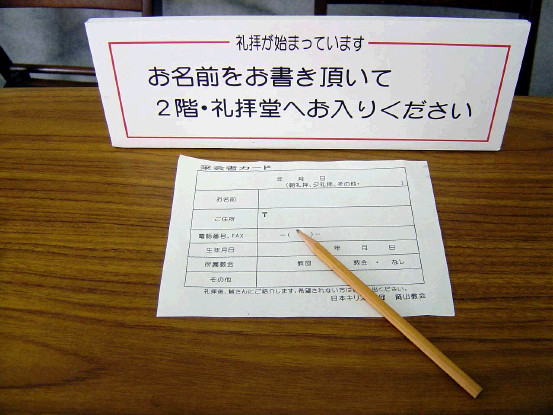 礼拝が始まっています
お名前をお書き頂いて
2階・礼拝堂へお入りください
来会者カード
年 月 日
(朝礼拝、夕礼拝、その他・ )
お名前
ご住所 〒
電話番号、FAX ー( )ー
生年月日 年 月 日
所属教会 教団 教会 ・ なし
その他
礼拝後、皆さんにご紹介します。希望されない方は ください。
日本キリスト 岡山教会